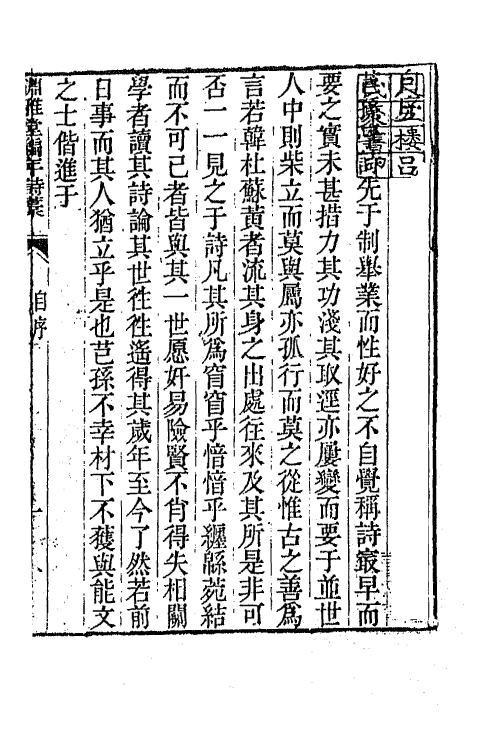 樓呂
先于制舉業而性好之不自覺稱詩㝡早而
要之實未甚措力其功淺其取逕亦屢變而要于並世
人中則柴立而莫與屬亦孤行而莫之從惟古之善爲
言若韓杜蘇黃者流其身之出處往來及其所是非可
否一一見之于詩凡其所爲窅窅乎愔愔乎纏緜菀結
而不可已者皆與其一世愿奸易險賢不肖得失相關
學者讀其詩論其世徃徃遙得其歲年至今了然若前
日事而其人猶立乎是也芑孫不幸材下不獲與能文
之士偕進于
淵雅堂編年詩藁 自序